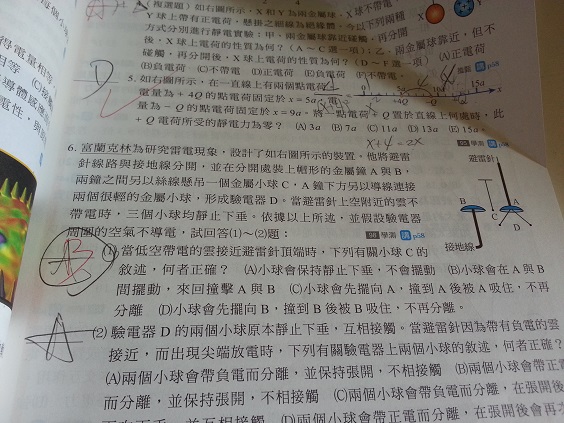 4.(複選題)如右圖所示,X和Y為兩金屬球,X球不帶電,
Y球上帶有正電荷,懸掛之細線為絕緣體,今以下列兩種
方式分別進行靜電實驗:甲,兩金屬球靠近碰觸,再分開
後,X球上電荷的性質為何?(A~C選一項);乙,兩金屬球靠近,但不
碰觸,再分開後,X球上電荷的性質為何?(D~F選一項) (A)正電荷
(B)負電荷 (C)不帶電 (D)正電荷 (E)負電荷 (F)不帶電。
D
5. 如右圖所示,在一直線上有兩個點電荷
電量為+4Q的點電荷固定於x=5a,電
量為-Q的點電荷固定於x=9a。將一點電荷+Q置於直線上何處時,此
+Q電荷所受的靜電力為零? (A) 3a (B) 7a (C) 11a (D) 13a (E) 15a。
x+4=2x
6. 富蘭克林為研究雷電現象,設計了如右圖所示的裝置。他將避雷
針線路與接地線分開,並在分開處裝上帽形的金屬鐘A與B,
兩鐘之間另以絲線懸吊一個金屬小球C,A鐘下方另以導線連接
兩個很輕的金屬小球,形成驗電器D。當避雷針上空附近的雲不
帶電時,三個小球均靜止下垂。依據以上所述,並假設驗電器
周圍的空氣不導電,試回答(1)~(2)題:
避雷針
B
A
C
D
接地線
B
(1) 當低空帶電的雲接近避雷針頂端時,下列有關小球C的
敘述,何者正確? (A)小球會保持靜止下垂,不會擺動 (B)小球會在A與B
間擺動,來回撞擊A與B (C)小球會先擺向A,撞到A後被A吸住,不再
分離 (D)小球會先擺向B,撞到B後被B吸住,不再分離。
A
(2) 驗電器D的兩個小球原本靜止下垂,互相接觸。當避雷針因為帶有負電的雲
接近,而出現尖端放電時,下列有關驗電器上兩個小球的敘述,何者正確?
(A)兩個小球會帶負電而分離,並保持張開,不相接觸 (B)兩個小球會帶正電
而分離,並保持張開,不相接觸 (C)兩個小球會帶負電而分離,在張開後
(D)兩個小球會帶正電而分離,在張開後會再次